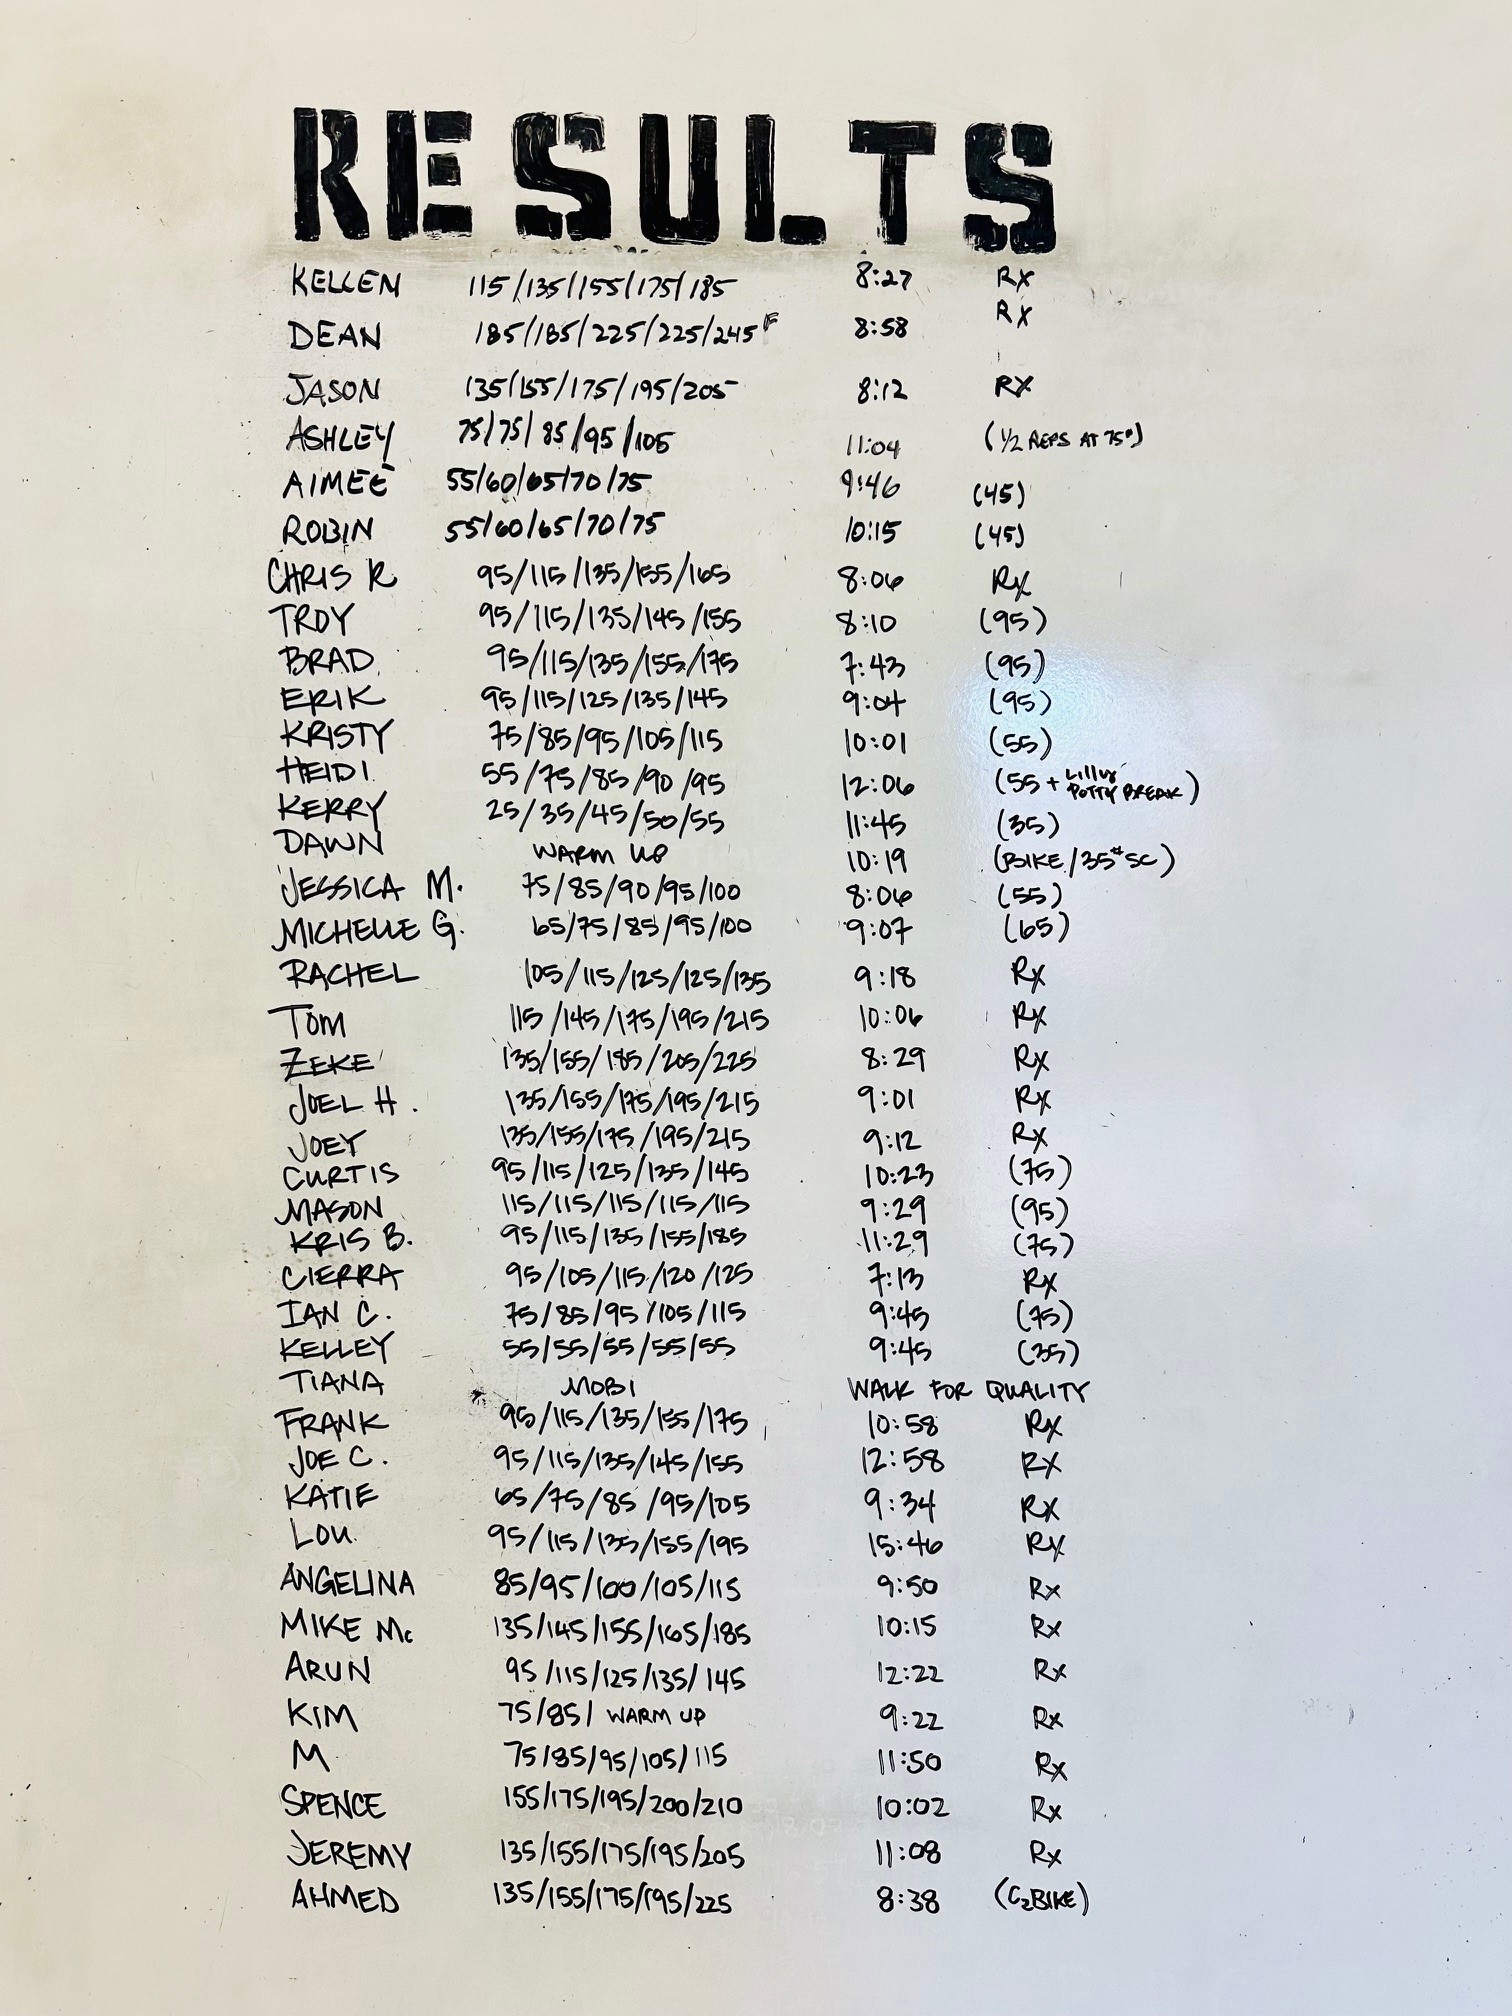 RESULTS
KELLEN 115/135/155/175/185 8:27 RX
DEAN 185/185/225/225/245F 8:58 RX
JASON 135/155/175/195/205 8:12 RX
ASHLEY 75/75/85/95/105 11:04 (1/2 REPS AT 75#)
AIMEE 55/60/65/70/75 9:46 (45)
ROBIN 55/60/65/70/75 10:15 (45)
CHRIS R 95/115/135/155/165 8:06 RX
TROY 95/115/135/145/155 8:10 (95)
BRAD 95/115/135/155/175 7:43 (95)
ERIK 95/115/125/135/145 9:04 (95)
KRISTY 75/85/95/105/115 10:01 (55)
HEIDI 55/75/85/90/95 12:06 (55 + Lillys POTTY BREAK)
KERRY 25/35/45/50/55 11:45 (35)
DAWN WARM UP 10:19 (BIKE/35# SC)
JESSICA M. 75/85/90/95/100 8:06 (55)
MICHELLE G. 65/75/85/95/100 9:07 (65)
RACHEL 105/115/125/125/135 9:18 Rx
TOM 115/145/175/195/215 10:06 Rx
ZEKE 135/155/185/205/225 8:29 Rx
JOEL H. 135/155/175/195/215 9:01 Rx
JOEY 135/155/175/195/215 9:12 Rx
CURTIS 95/115/125/135/145 10:23 (75)
MASON 115/115/115/115/115 9:29 (95)
KRIS B. 95/115/135/155/185 11:29 (75)
CIERRA 95/105/115/120/125 7:13 Rx
IAN C. 75/85/95/105/115 9:45 (75)
KELLEY 55/55/55/55/55 9:45 (35)
TIANA MOBI WALK FOR QUALITY
FRANK 95/115/135/155/175 10:58 Rx
JOE C. 95/115/135/145/155 12:58 RX
KATIE 65/75/85/95/105 9:34 RX
LOU. 95/115/135/155/195 15:46 RX
ANGELINA 85/95/100/105/115 9:50 Rx
MIKE Mc 135/145/155/165/185 10:15 Rx
ARUN 95/115/125/135/145 12:22 Rx
KIM 75/85/ WARM UP 9:22 Rx
M 75/85/95/105/115 11:50 Rx
SPENCE 155/175/195/200/210 10:02 Rx
JEREMY 135/155/175/195/205 11:08 Rx
AHMED 135/155/175/195/225 8:38 (C2BIKE)